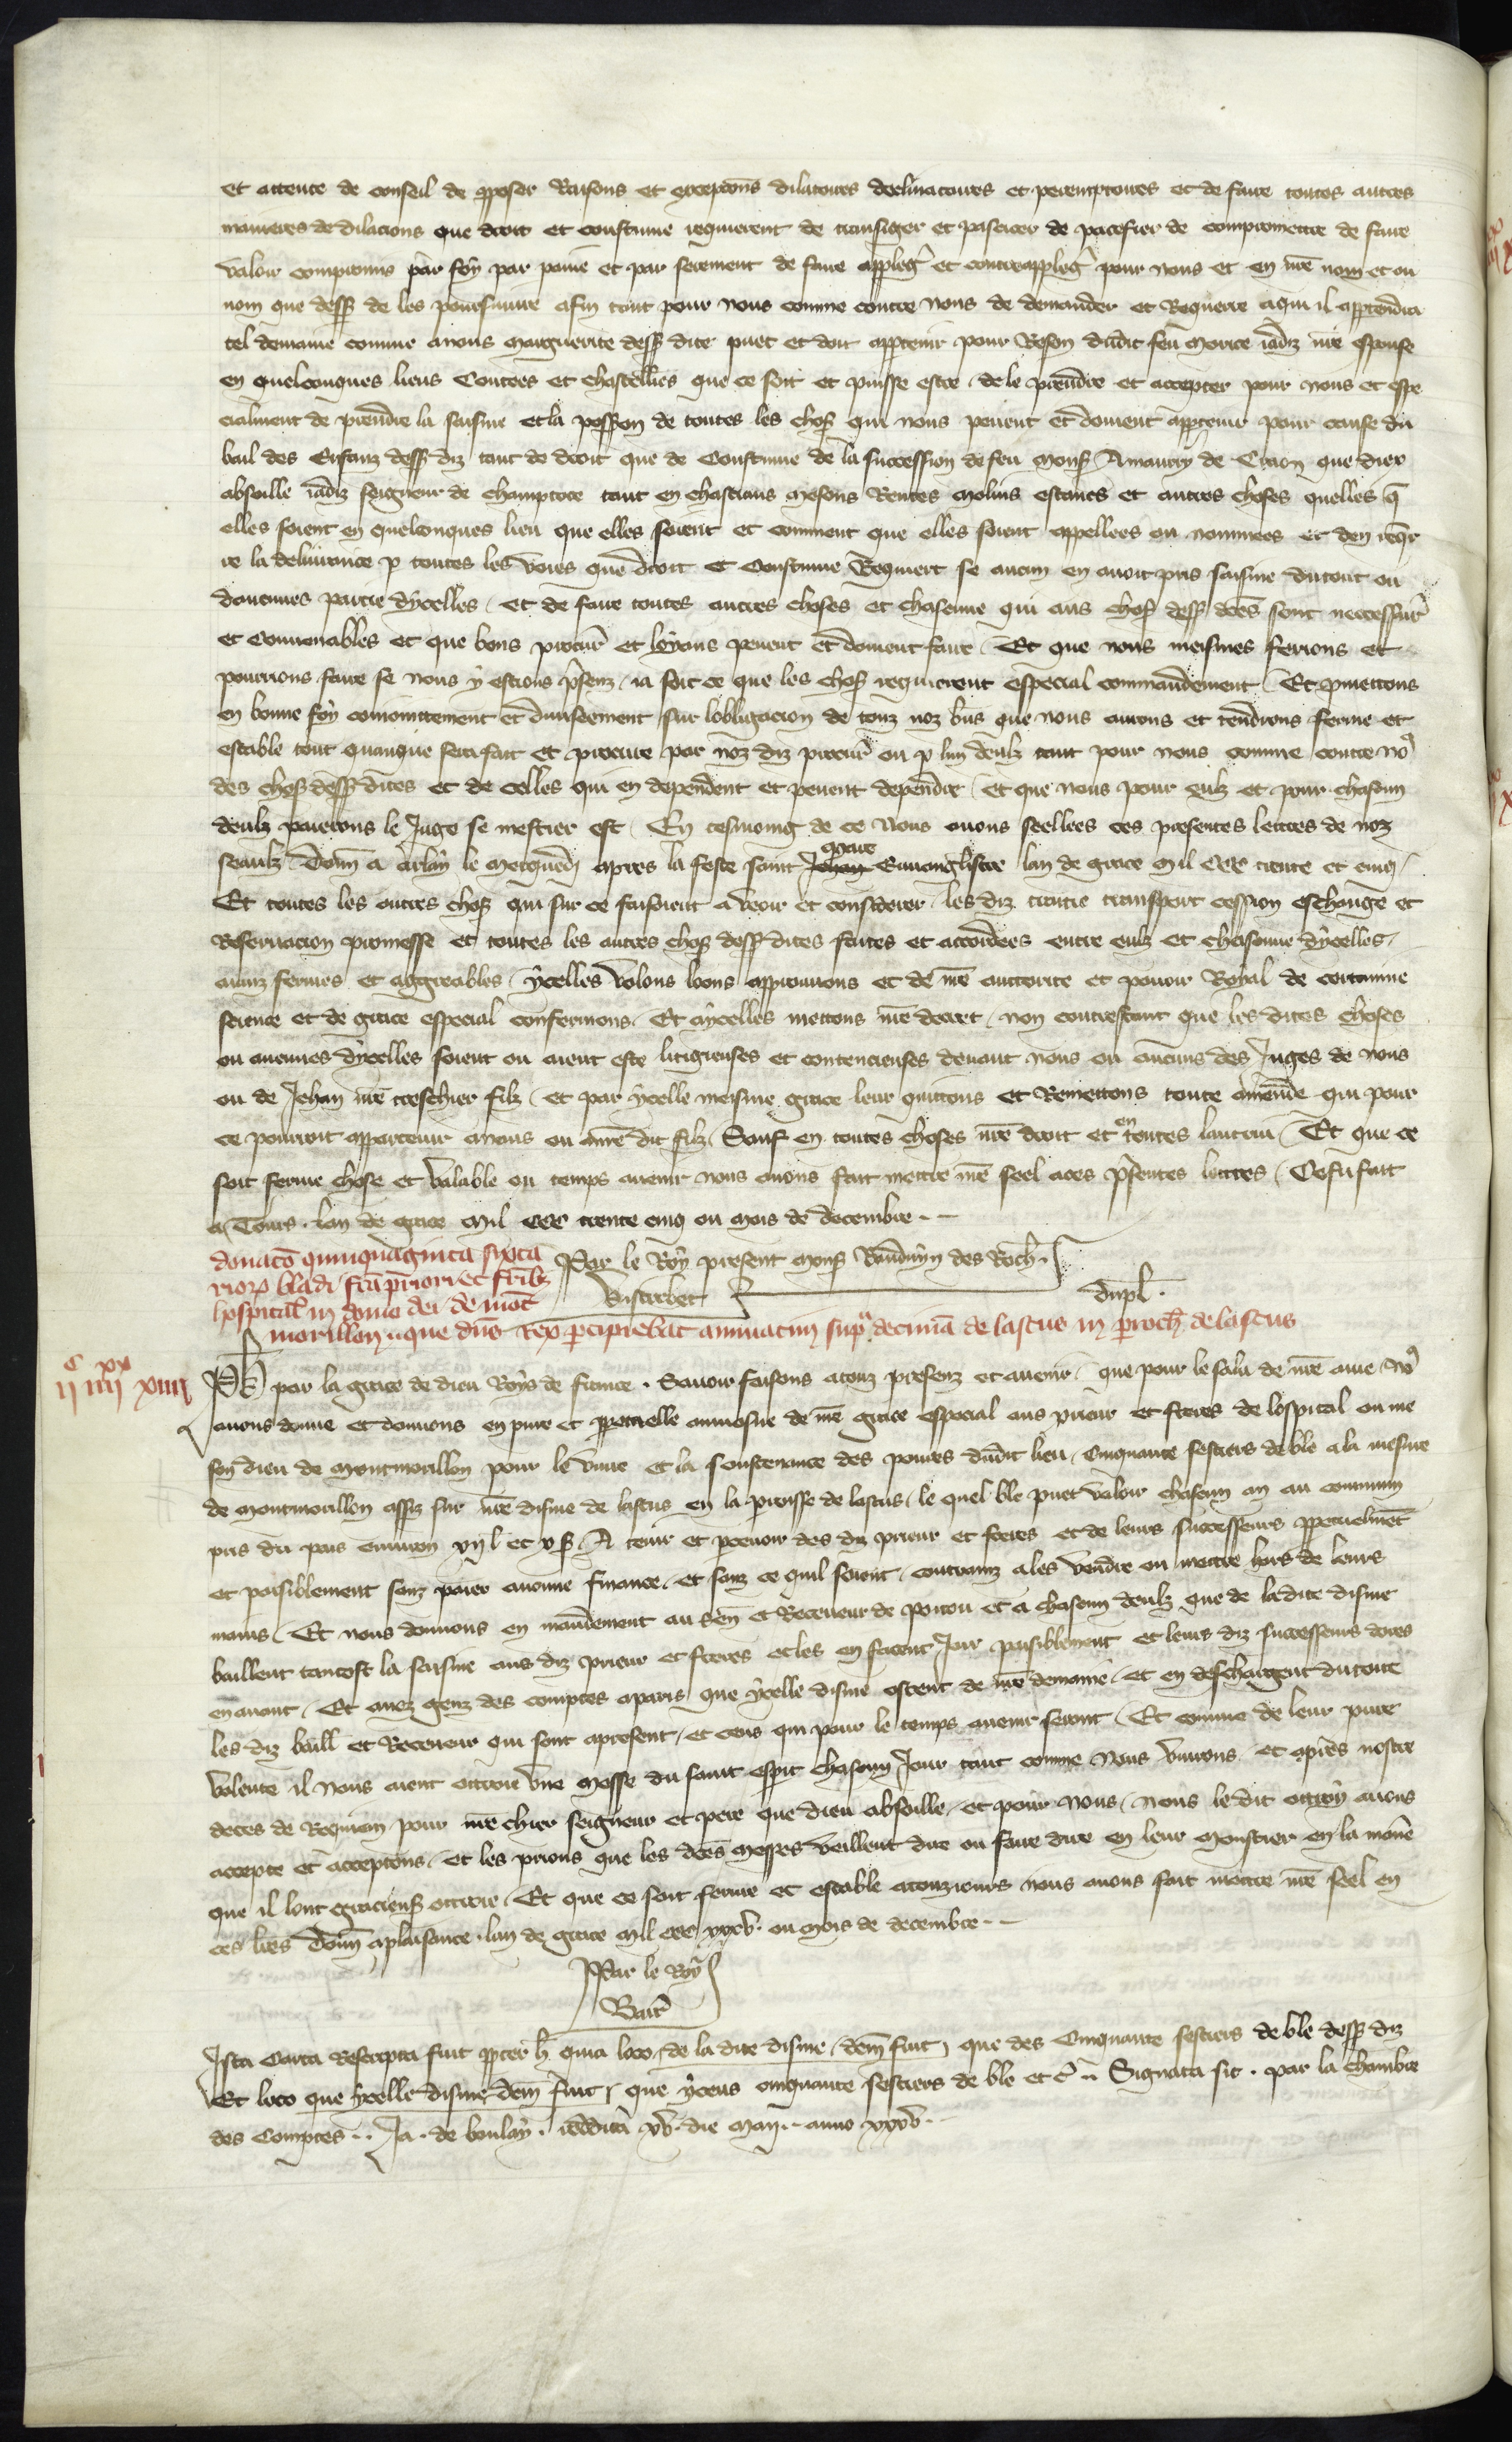 et attente de conseil de pposer Raisons et excepcons dilatoires declinatoires et peremptoires et de faire toutes autres
manieres de dilacions que droit et coustume requierent de transiger et pascicer de pacefier de compromettre de faire
valoir compromis par foy par paine et par serement de faire appleg et contreappleg pour nous et en nre nom et ou
nom que dess de les poursuiure afin tant pour nous comme contre nous de demander et Requerre a qui il apptendra
tel demaine comme a nous marguerite dess dite puet et doit apptenir pour Reson dudit feu morice iadiz nre espouse
en quelconques lieus Contrees et chastellies que ce soit et puisse estre de le prendre et accepter pour nous et espe
cialment de prendre la saisine et la possson de toutes les chos qui nous peuent et doiuent apptenir pour cause du
bail des Enfanz dess diz tant de droit que de Coustume de la succession de feu mons Amaury de Craon que diex
absoille iadiz seigneur de champtoce tant en chastiaus mesons Rentes molins estancs et autres choses quelles q
elles soient en quelconques lieu que elles soient et comment que elles soient appellees ou nommees et den reqr
re la deliurance p toutes les voies que droit et Coustume Requiert se aucun en auoit pris saisine du tout ou
daucunes partie dycelles et de faire toutes autres choses et chascune qui aus chos dess dces sont neccessair
et conuenables et que bons procur et loyaus peuent et doiuent faire Et que nous meismes ferions et
pourrions faire se nous y estions psenz ia soit ce que les chos requierent especial commandement Et pmettons
en bonne foy conioinctement et diuiseement sur lobligacion de touz noz bns que nous aurons et tendrons ferme et
estable tout quanque sera fait et procure par noz diz procur ou p lun deulz tant pour nous comme contre no9
des chos dess dites et de celles qui en dependent et peuent dependre et que nous pour eulz et pour chascun
deulz paierons le Juge se mestier est En tesmoing de ce Nous auons seellees ces presentes lettres de noz
seaulz Donn a erlay le merquedi apres la feste saint Jehan marc Euuangliste lan de grace mil CCC trente et cinq
Et toutes les autres chos qui sur ce faisoient a veoir et considerer les diz traitie transport cession eschange et
Reseruacion promesse et toutes les autres chos dess dites faites et accordees entre eulz et chascune dycelles
aianz fermes et aggreables ycelles volons loons approuuons et de nre auctorite et pouoir Royal de certaine
science et de grace especial confermons Et a ycelles mettons nre decret non contrestant que les dites choses
ou aucunes dycelles soient ou aient este litigieuses et contencieuses deuant nous ou aucuns des Juges de nous
ou de Jehan nre treschier filz et par ycelle meisme grace leur quittons et Remettons toute amende qui pour
ce pourroit appartenir a nous ou a nre dit filz Sauf en toutes choses nre droit et en toutes lautrui Et que ce
soit ferme chose et valable ou temps auenir nous auons fait mettre nre seel a ces psentes lettres Ce fu fait
a Tours lan de grace Mil CCC trente cinq ou mois de decembre
donaco quinquaginta sexta
rior bladi fca priori et frib
hospital in domo dei de mot
Par le Roy present mons Baudouyn des Roch
Vistrebec
dupl
morillon que dns Rex pcipiebat annuatim sup decima de lastus in proch de lastus
c xx
ii iiii xiiii
Ph par la grace de dieu Roys de france Sauoir faisons a touz presenz et auenir que pour le salu de nre ame no9
auons donne et donnons en pure et ppetuelle aumosne de nre grace especial aus prieur et freres de lospital ou me
son dieu de montmorillon pour le viure et la soustenance des poures dudit lieu Cinquante sestiers de ble a la mesure
de montmorillon assiz sur nre disme de lastus en la perroisse de lastus le quel ble puet valoir chascun an au commun
pris du pais enuiron xii l et x s A tenir et perceuoir des diz prieur et freres et de leurs successeurs ppetuelment
et paisiblement sanz paier aucune finance et sanz ce quil soient contrainz a les vendre ou mettre hors de leurs
mains Et nous donnons en mandement au Sen et Receueur de poitou et a chascun deulz que de la dite disme
baillent tantost la saisine aus diz prieur et freres et les en facent Joir paisiblement et leurs diz successeurs dores
en auant Et a nez genz des comptes a paris que ycelle disme ostent de nre demaine et en deschargent du tout
les diz baill et Receueur qui sont apresent et ceus qui pour le temps auenir seront Et comme de leur pure
volente il nous aient ottroie vne Messe du saint esprit chascun Jour tant comme nous viurons et apres nostre
deces de Requiem pour nre chier seigneur et pere que dieu absoille et pour nous nous le dit ottroy auons
accepte et acceptons et les prions que les dces messes veillent dire ou faire dire en leur monstier en la mane
que il lont gracieus ottroie Et que ce soit ferme et estable a touzjours nous auons fait mettre nre seel en
ces lres Donn a plaisance lan de grace Mil CCC xxxv ou mois de decembre
Par le Roy
Barr
Ista Carta Rescripta fuit ppter h quia loco de la dite disme dcm fuit que des Cinquante sestiers de ble dess diz
Et loco que ycelle disme dcm fuit que yceus cinquante sestiers de ble et c Signata sic par la Chambre
des Comptes Ja de boulay reddita xv die Maii anno xxxv